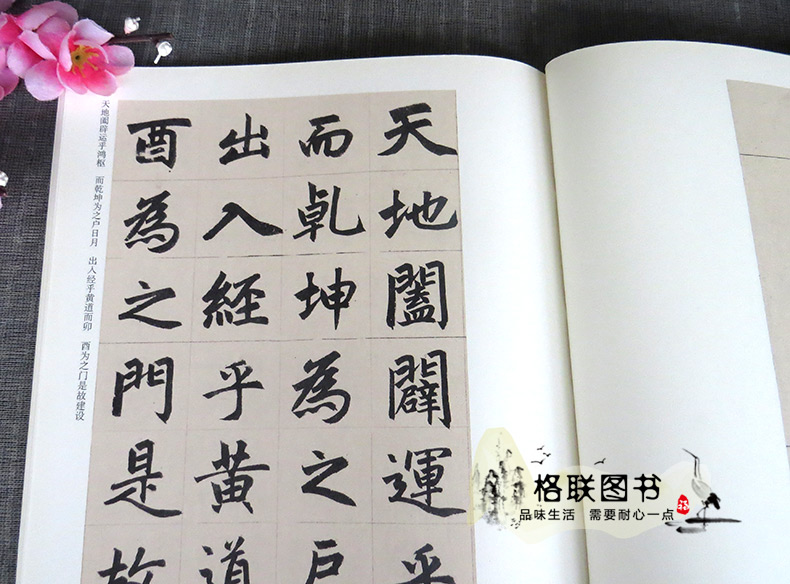 天地闔闢運乎
而乾坤為之戶
出入經乎黃道
酉為之門是故
天地阖辟运乎鸿枢 而乾坤为之户日月 出入经乎黄道而卯 酉为之门是故建设
格联图书
品味生活 需要耐心一点